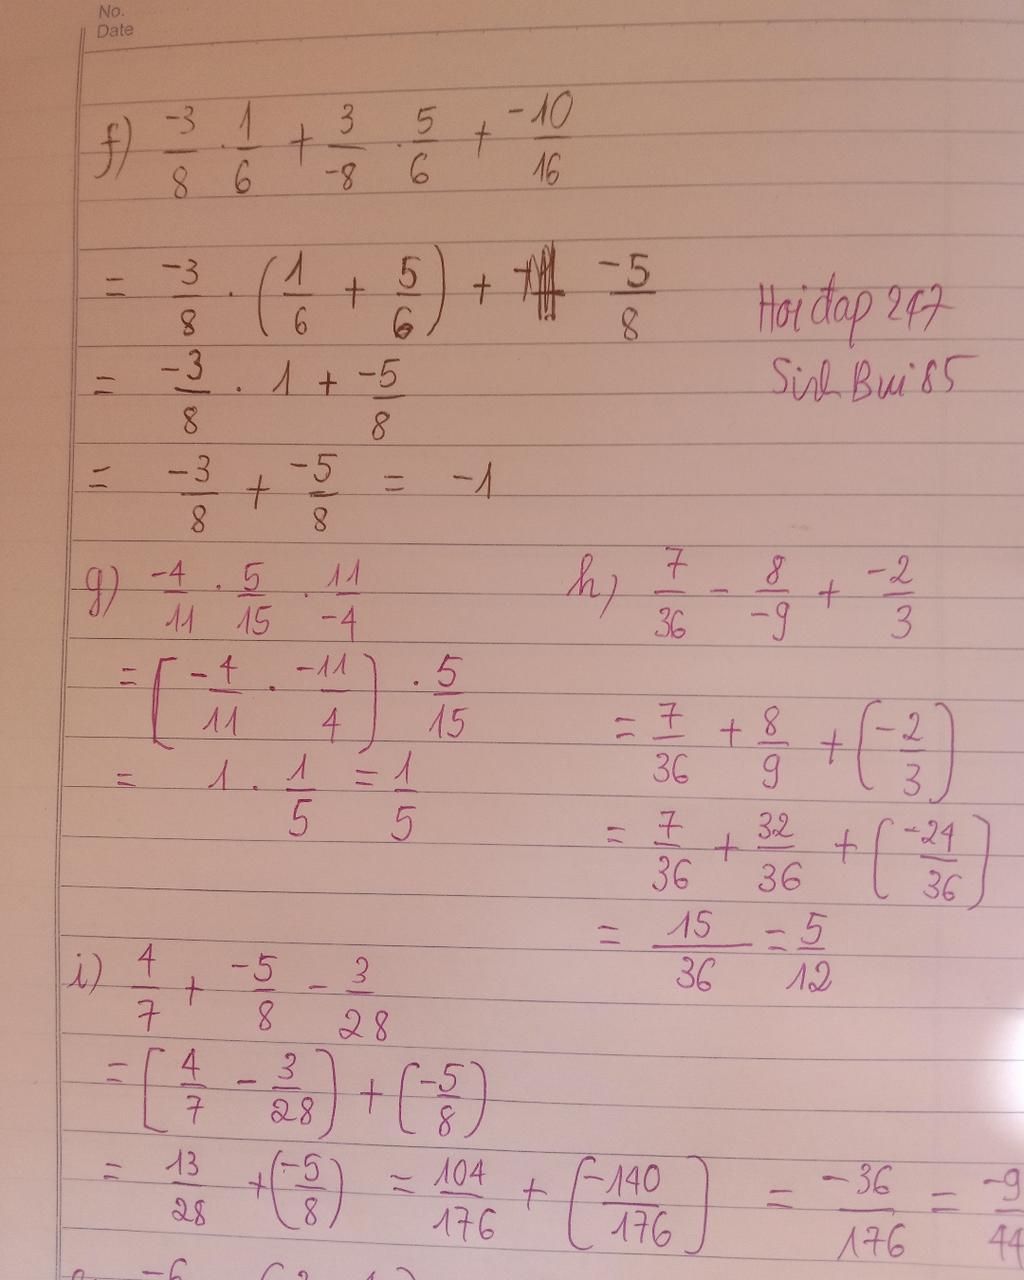 No.
Date
f) -3/8 . 1/6 + 3/-8 . 5/6 + -10/16
= -3/8 . (1/6 + 5/6) + -5/8
Hoiđap 247
= -3/8 . 1 + -5/8
Bui 85
= -3/8 + -5/8 = -1
g) -4/11 . 5/15 . 11/-4
= [-4/11 . -11/4] . 5/15
= 1 . 1/5 = 1/5
h) 7/36 - 8/-9 + -2/3
= 7/36 + 8/9 + (-2/3)
= 7/36 + 32/36 + (-24/36)
= 15/36 = 5/12
i) 4/7 + -5/8 - 3/28
= [4/7 - 3/28] + (-5/8)
= 13/28 + (-5/8) = 104/176 + (-140/176) = -36/176 = -9/44
-6